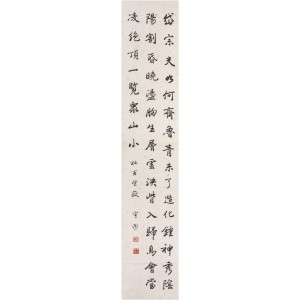 岱宗夫如何齊魯青未了造化鍾神秀陰
陽割昏曉盪胸生層雲決眥入歸鳥會當
凌絕頂一覽眾山小 杜甫望嶽